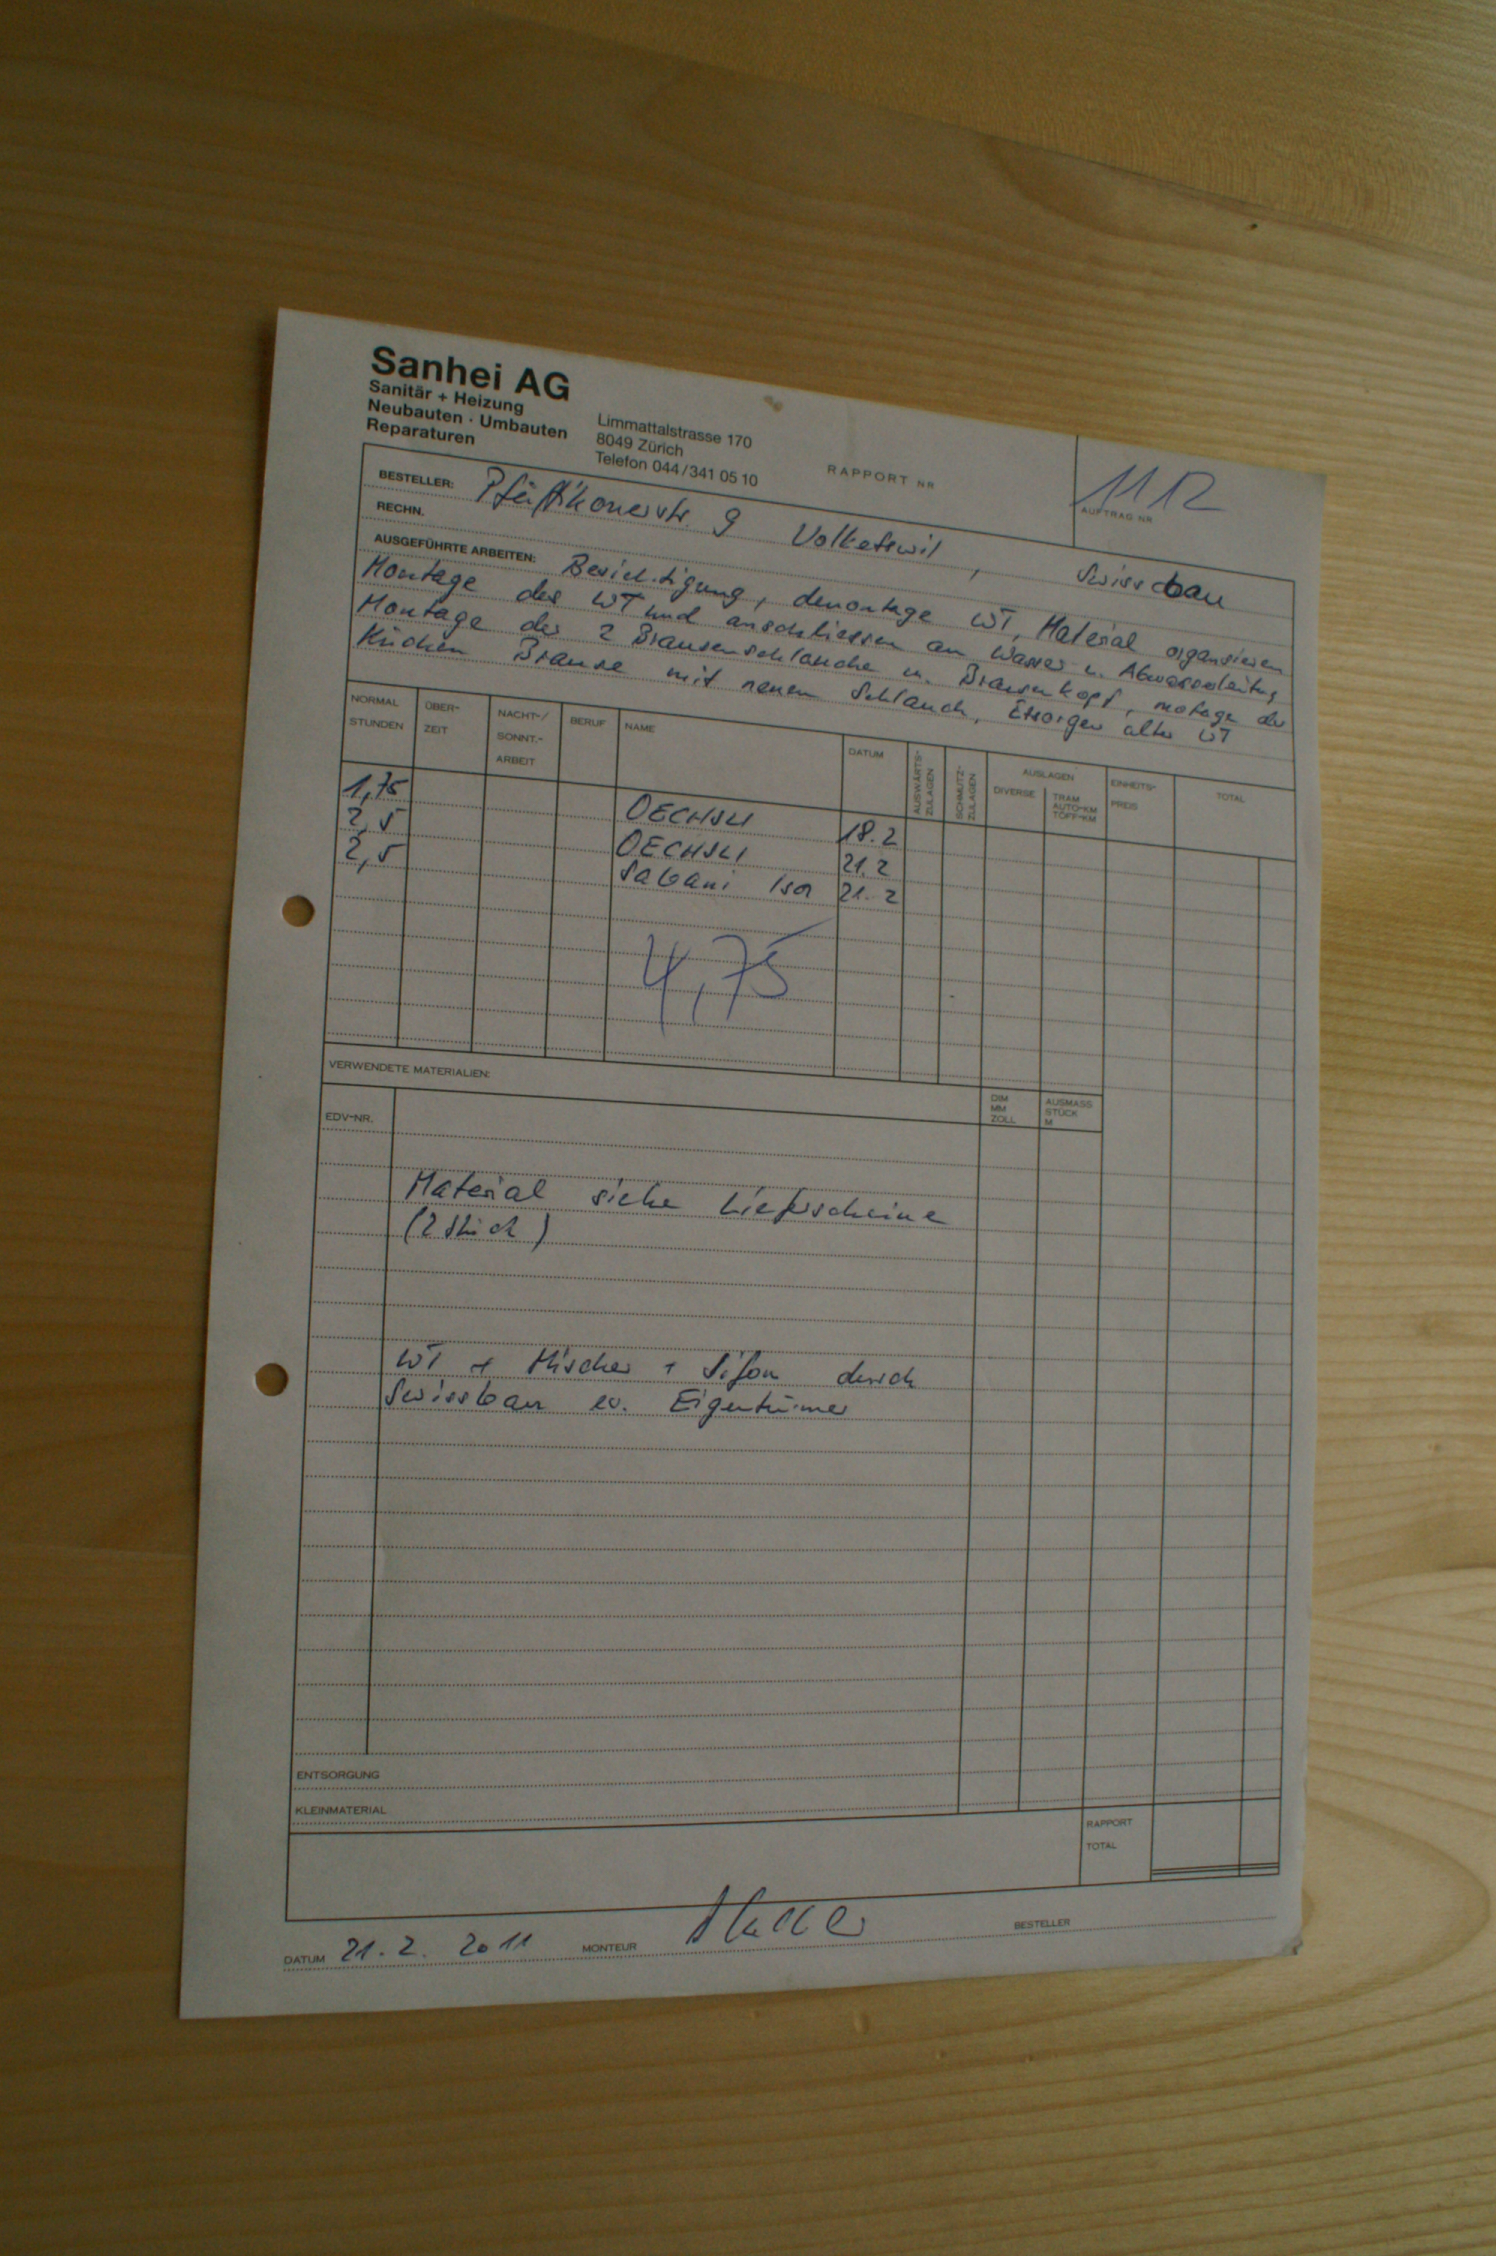 Sanhei AG
Sanitär + Heizung
Neubauten · Umbauten
Reparaturen
Limmattalstrasse 170
8049 Zürich
Telefon 044/341 05 10
RAPPORT NR
1112
AUFTRAG NR
BESTELLER: Pfäffikonerstr. 9 Volketswil, Swissbau
RECHN.
AUSGEFÜHRTE ARBEITEN: Besichtigung, demontage WT, Material organsieren
Montage des WT und anschliessen an Wasser u. Abwasserleitung
Montage der 2 Brausenschläuche u. Brausenkopf, motage der
Küchen Brause mit neuen Schlauch, Etsorgen alter WT
NORMAL STUNDEN ÜBER-ZEIT NACHT-/ SONNT.- ARBEIT BERUF NAME DATUM AUSWÄRTS-ZULAGEN SCHMUTZ-ZULAGEN AUSLAGEN DIVERSE TRAM AUTO-KM TÖFF-KM EINHEITS-PREIS TOTAL
1,75 OECHSLI 18.2
2,5 OECHSLI 21.2
2,5 Sabani Isa 21.2
4,75
VERWENDETE MATERIALIEN:
EDV-NR. DIM MM ZOLL AUSMASS STÜCK M
Material siehe Lieferscheine
(2 Stück)
WT + Mischer + Sifon durch
Swissbau ev. Eigentümer
ENTSORGUNG
KLEINMATERIAL
RAPPORT
TOTAL
DATUM 21.2. 2011 MONTEUR BESTELLER